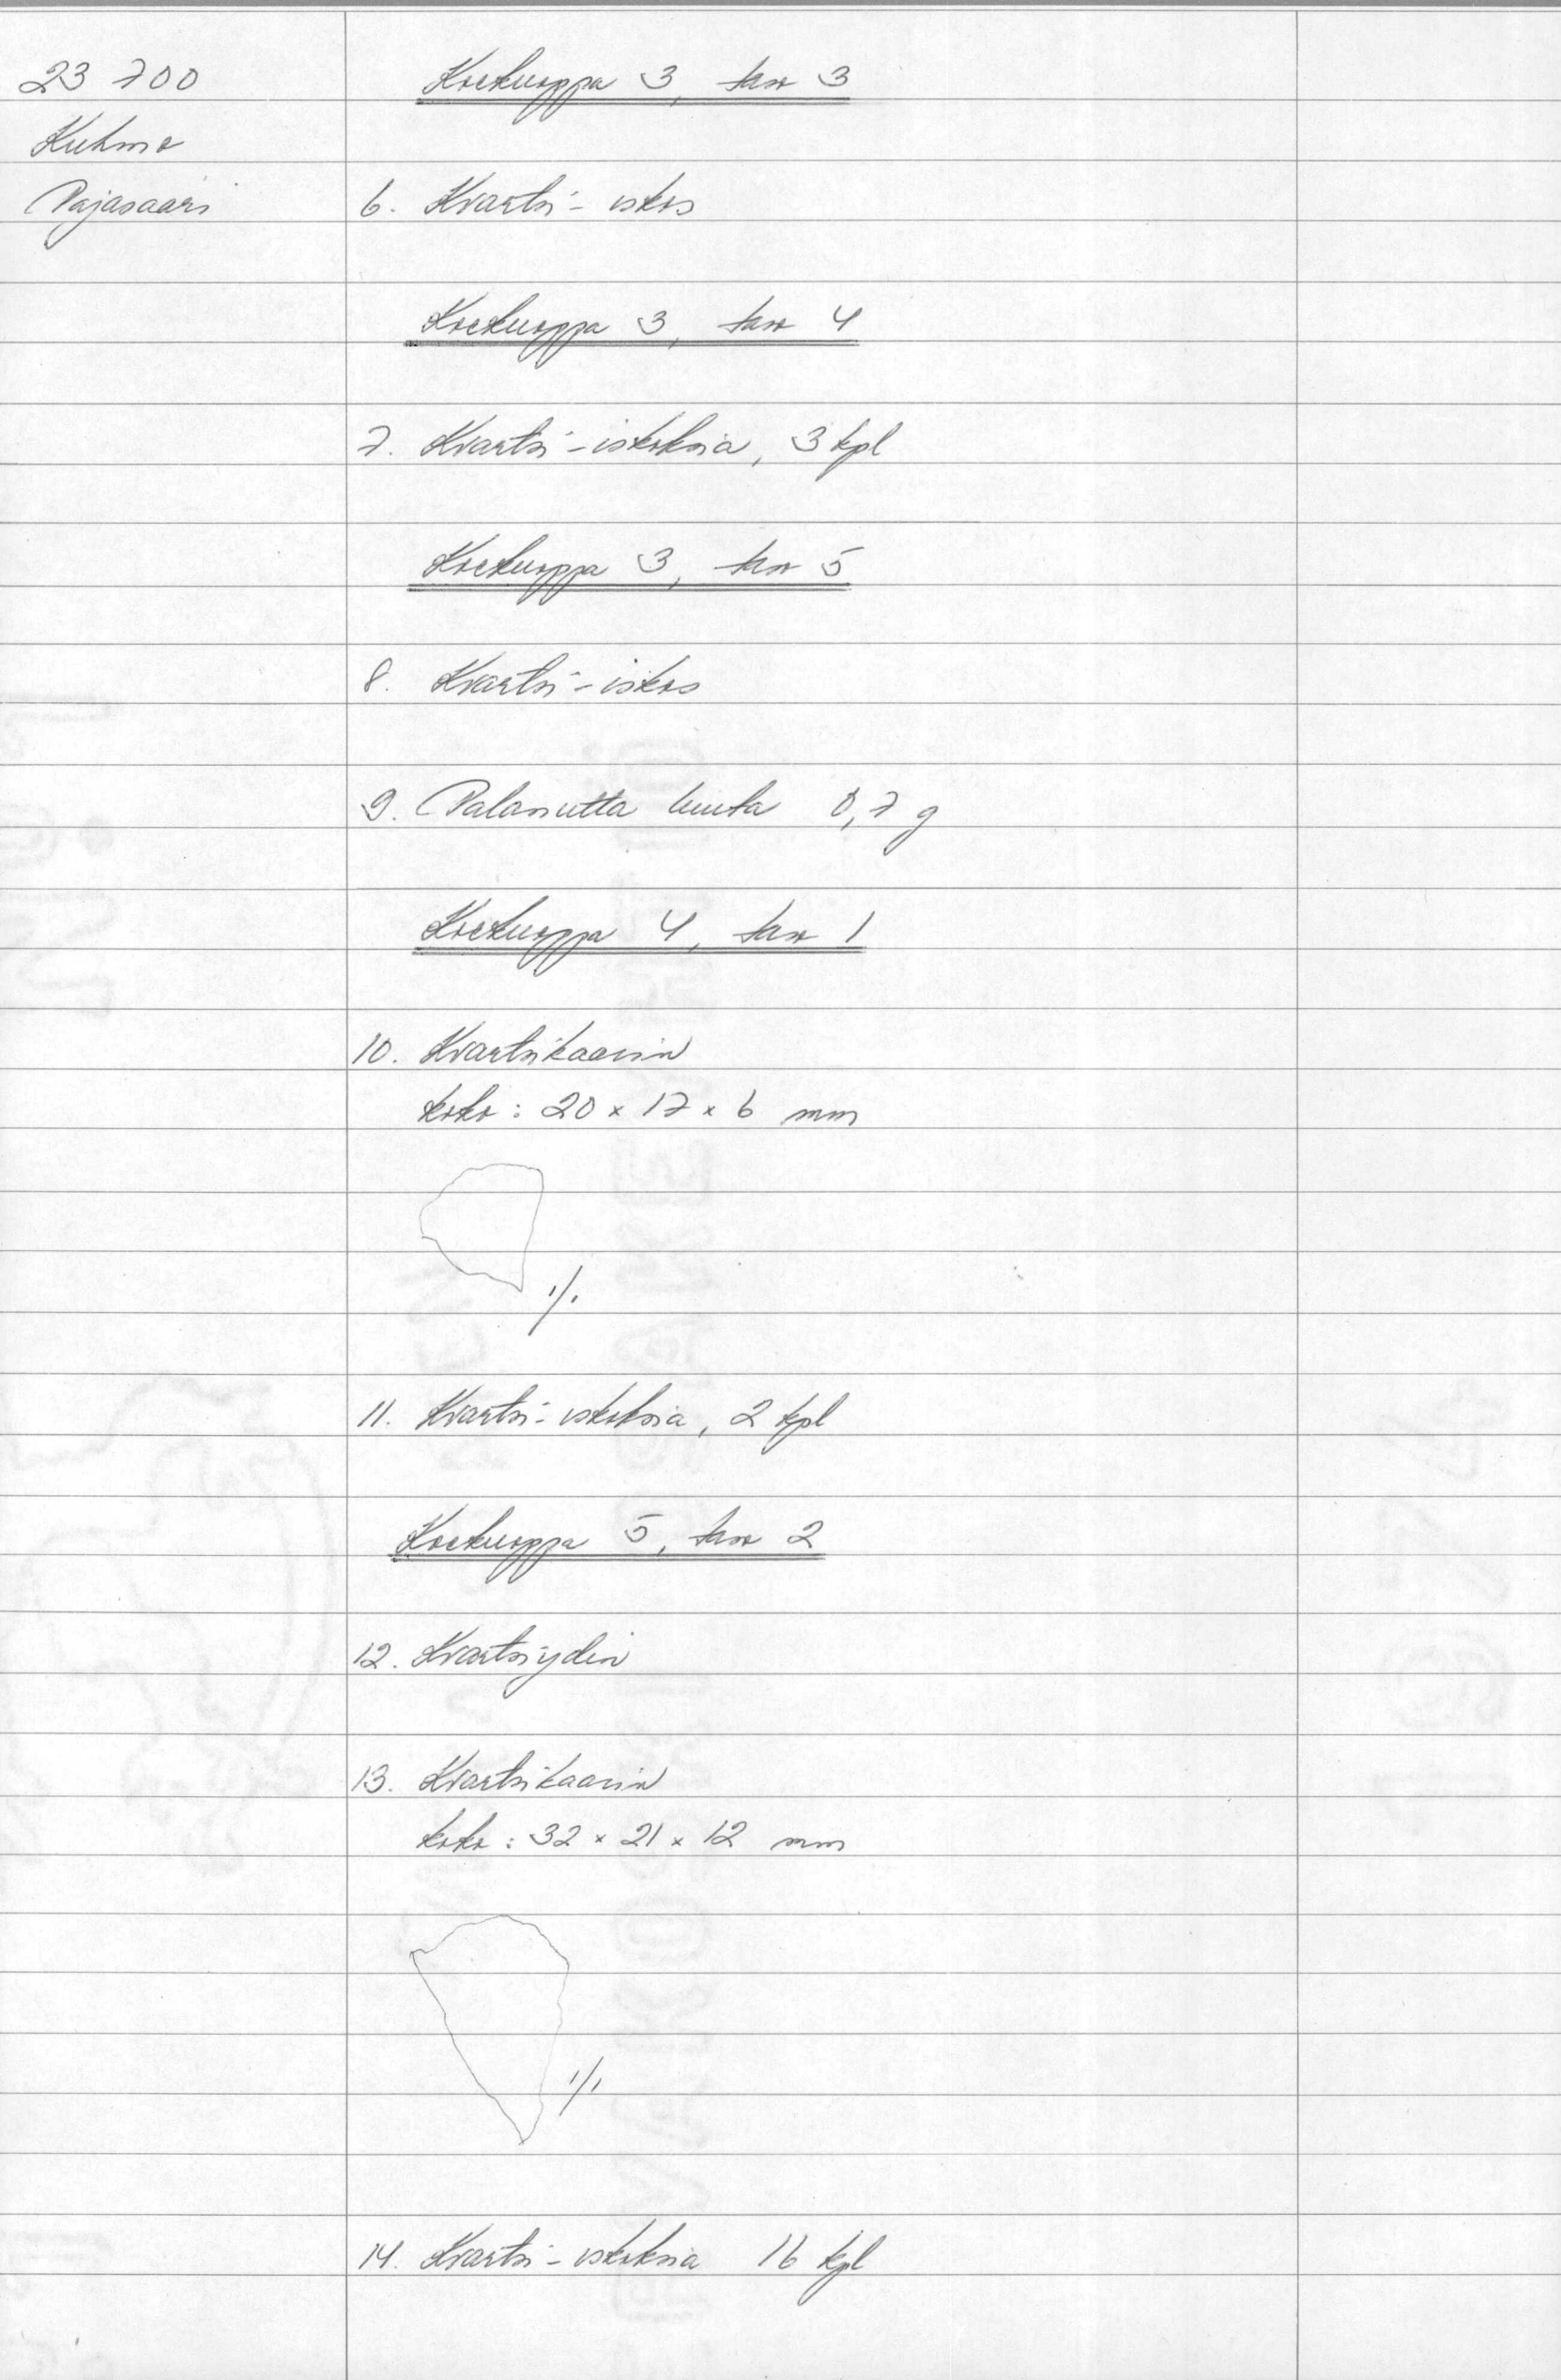 23 700
Kuhmo
Pajasaari
Koekuoppa 3, taso 3
6. Kvartsi-iskos
Koekuoppa 3, taso 4
7. Kvartsi-iskoksia, 3 kpl
Koekuoppa 3, taso 5
8. Kvartsi-iskos
9. Palanutta luuta 0,7 g
Koekuoppa 4, taso 1
10. Kvartsikaavin
koko: 20 x 17 x 6 mm
1/1
11. Kvartsi-iskoksia, 2 kpl
Koekuoppa 5, taso 2
12. Kvartsiydin
13. Kvartsikaavin
koko: 32 x 21 x 12 mm
1/1
14. Kvartsi-iskoksia 16 kpl